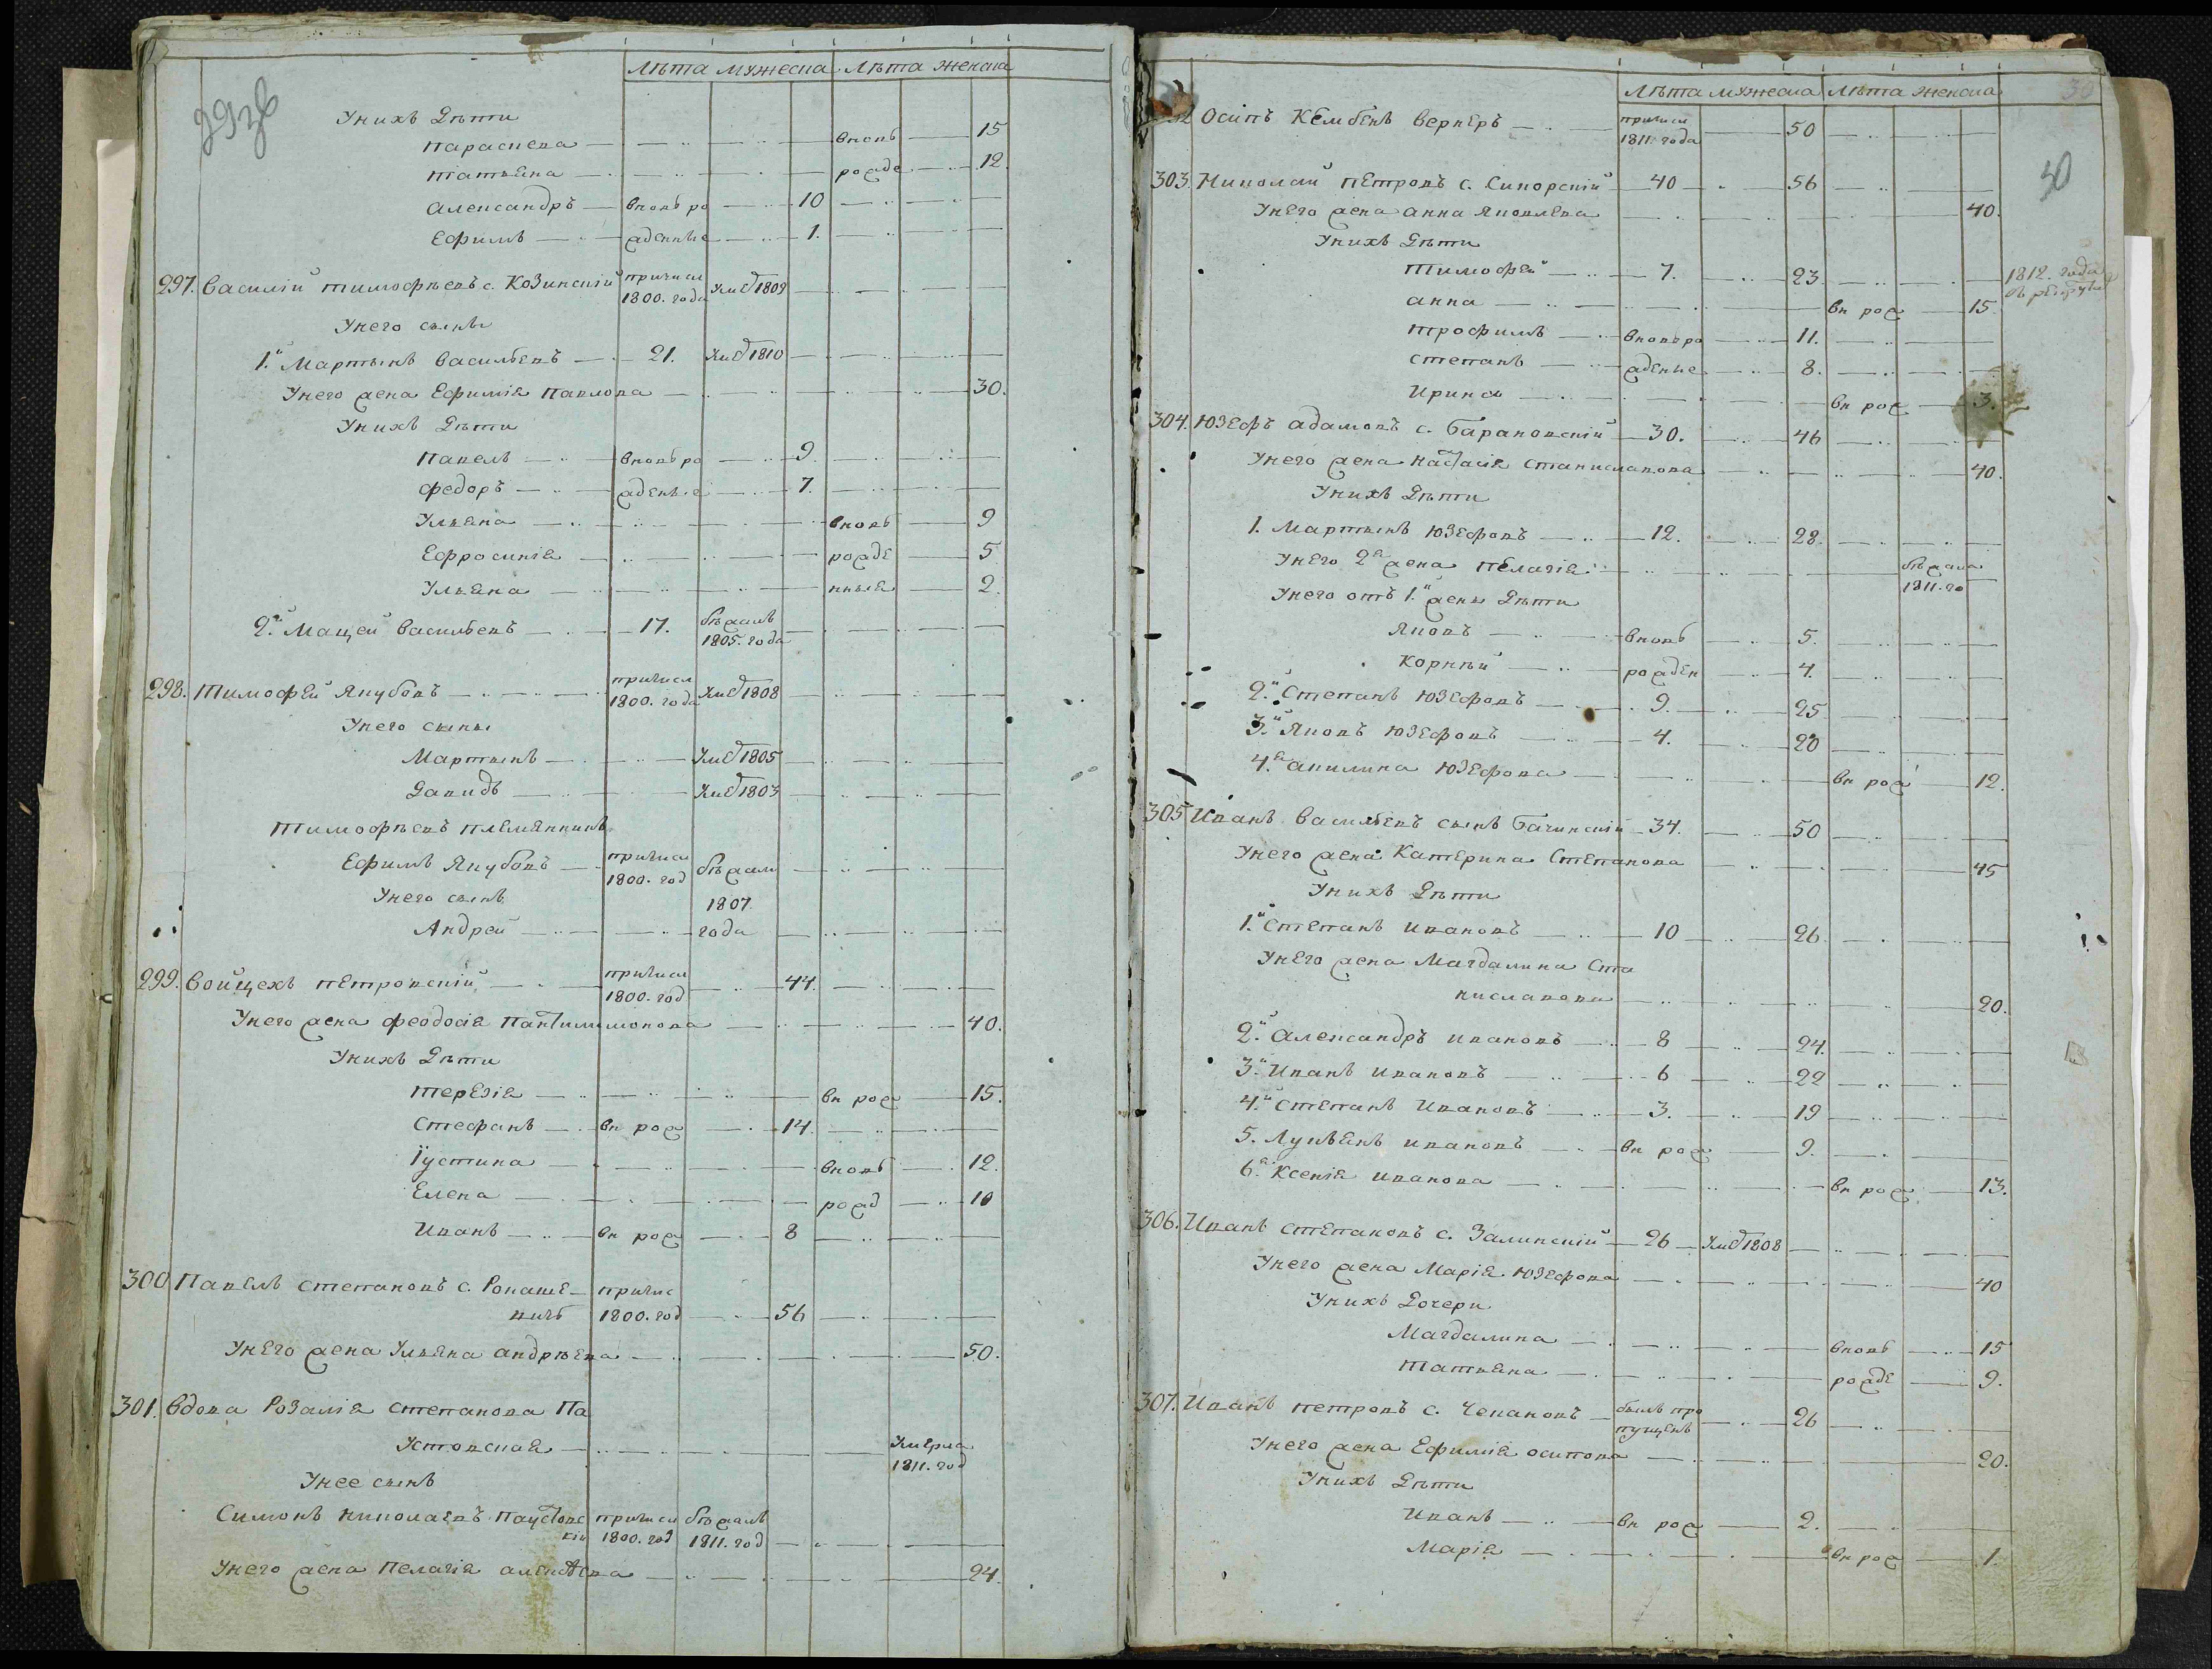 Лѣта мужеска Лѣта женска
29зв
У нихъ дѣти
Параскева вновь 15
татьяна рожде 12
александръ вновь ро 10
Ефимъ жденные 1.
297. василій тимофѣевъ с. Козинскій причисл 1800. года Умеr 1809
У него сыны
1.й Мартынъ васильевъ 21. Умеr 1810
У него жена Ефимія павлова 30.
У нихъ дѣти
павелъ вновь ро 9.
федоръ жденые 7.
Ульяна вновь 9
Ефросинія рожде 5
Ульяна нныя 2.
2.й Мацей васильевъ 17. бѣжалъ 1805. года
298. тимофей якубовъ причисл 1800. года Умеr 1808
У него сыны
Мартынъ Умеr 1805
давидъ Умеr 1803
тимофѣевъ племянникъ
Ефимъ якубовъ причисл 1800. год бѣжали
У него сынъ 1807
Андрей года
299. войцехъ петровскій причисл 1800. год 44.
У него жена феодосія пантилимонова 40.
У нихъ дѣти
терезія вн рож 15.
стефанъ вн рож 14.
Іустина вновь 12.
Елена рожд 10
Иванъ вн рож 8
300. Павелъ степановъ с. Рокаше причис
вичь 1800. год 56
У него жена Ульяна андрѣева 50.
301. вдова Розалія степанова Па
Устовская Умерла 1811. год
У нее сынъ
Симонъ николаевъ паустовс причисл бѣжалъ
кій 1800. год 1811. год
У него жена пелагія алексѣева 24.
Лѣта мужеска Лѣта женска
30
30
302 Осипъ Кембенъ вернеръ причисл 1811. года 50
303. Николай петровъ с. Сикорскій 40 56
У него жена анна яковлева 40.
У нихъ дѣти
тимофей 7. 23. 1812. года
въ рекруты
анна вн рож 15.
трофимъ вновь ро 11.
степанъ жденые 8.
Ирина вн рож 3.
304. Юзефъ адамовъ с. барановскій 30. 46
У него жена настасія станиславова 40.
У нихъ дѣти
1. мартынъ юзефовъ 12. 28.
У него 2я жена пелагія бѣжала 1811. го
У него отъ 1.й жены дѣти
яковъ вновь 5.
корнѣй рожден 4.
2.й степанъ юзефовъ 9. 25
3.й яковъ юзефовъ 4. 20
4.я акилина юзефова вн рож 12.
305 Иванъ васильевъ сынъ бачинскій 34. 50
У него жена Катерина степанова 45
У нихъ дѣти
1.й степанъ ивановъ 10 26.
У него жена магдалина ста
ниславова 20.
2.й александръ ивановъ 8 24.
3.й Иванъ ивановъ 6 22
4.й степанъ ивановъ 3. 19
5. Лукьянъ ивановъ вн рож 9.
6.я Ксенія иванова вн рож 13.
306. Иванъ степановъ с. Залинскій 26 Умеr 1808
У него жена марія юзефова 40
У нихъ дочери
Магдалина вновь 15
татьяна рожде 9.
307. Иванъ петровъ с. Чекановъ былъ про пущенъ 26
У него жена Ефимія осипова 20.
У нихъ дѣти
Иванъ вн рож 2.
Марія вн рож 1.